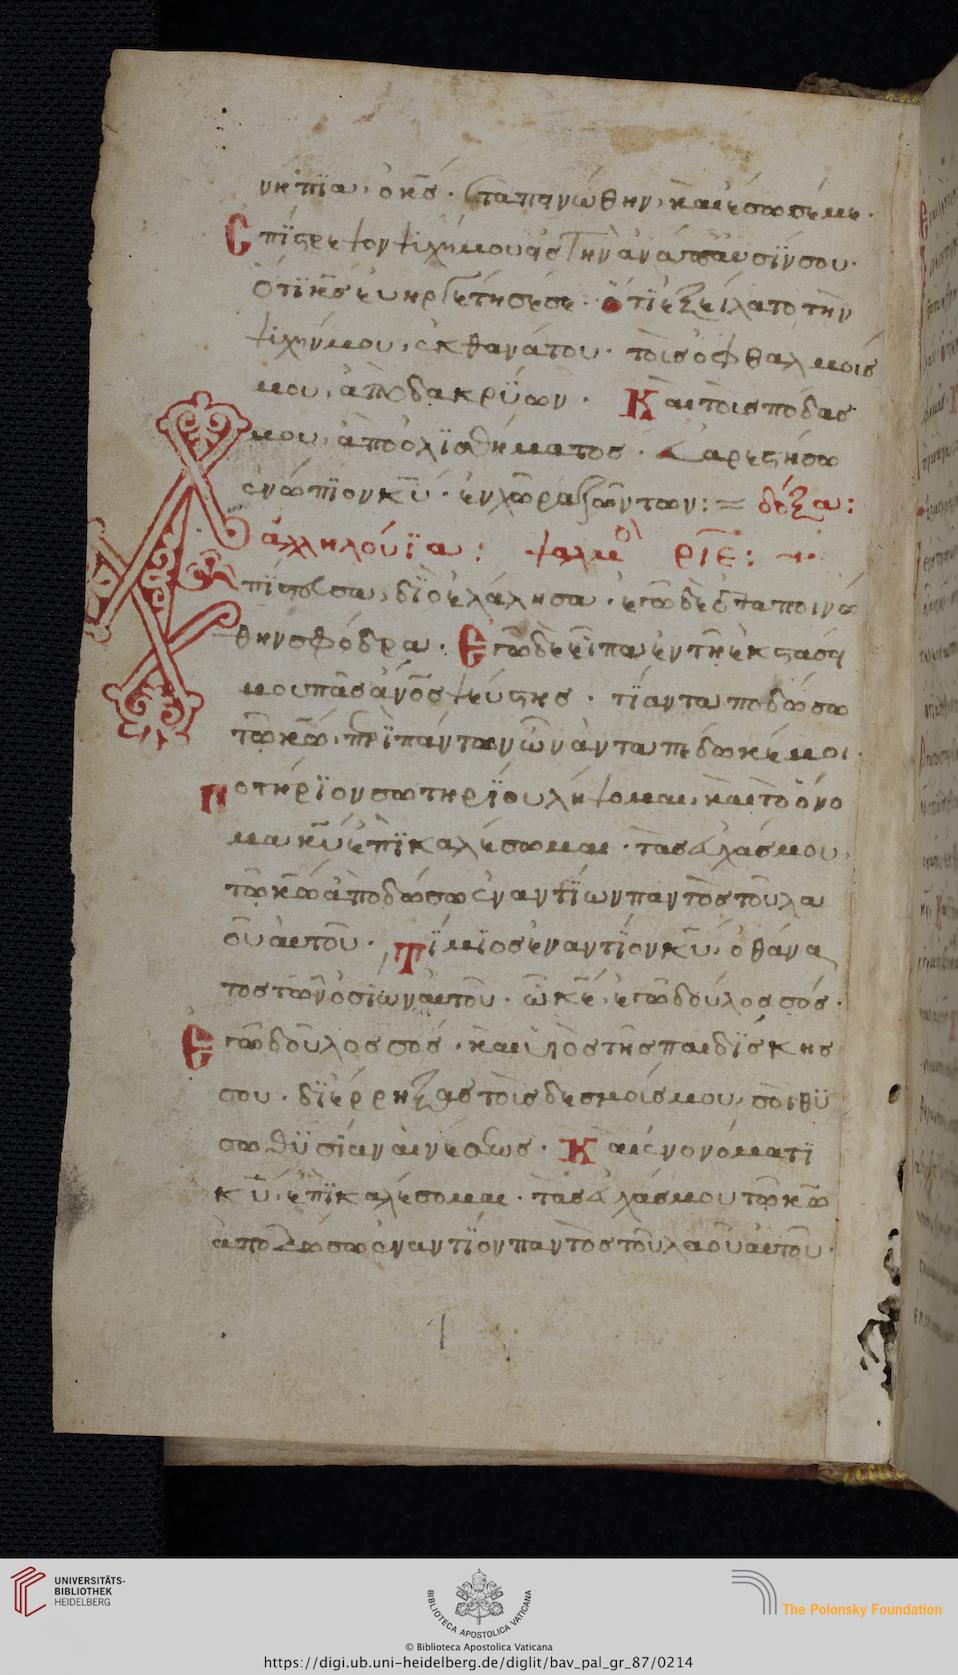 νήπϊα, ὁ κς̄. ἐταπηνώθην, καὶ ἔσωσέ με.
Ἐπϊστρεψον ψιχήμου εἰς τὴν ἀνάπαυσϊν σου.
ὅτϊ κς̄ ἐυηργέτησέ σε. ὅτϊ ἐξείλατο τὴν
ψιχήν μου, ἐκ θανάτου. τοὶς ὀφθαλμοίς
μου, ἀπὸ δακρΰων. Καὶ τοὶς πόδας
μου, ἀπὸ ὀλϊσθήματος. Εὐαρεστήσω
ἐνώπϊον κῡ. ἐν χώρα ζώντων: = δόξα:
ἀλληλούϊα: ψαλμὸ ρῑε:
Ἐπίστευσα, δϊὸ ἐλάλησα. ἐγὼ δὲ ἐταποινώ
θην σφόδρα. Ἐγὼ δὲ εἶπα ἐν τῆ ἐκστάσει
μου πᾶς ἀνο̄ς ψεύστης. τί ἀνταποδώσω
τῶ κω̄, περὶ πάντων ὧν ἀνταπέδωκέ μοι.
Ποτήρϊον σωτηρϊου λήψομαι, καὶ τὸ ὄνο
μα κῡ ἐπϊκαλέσωμαι. τὰς εὐχάς μου,
τῶ κω̄ ἀποδώσω ἐναντΐων παντὸς τοῦ λα
οῦ αὐτοῦ. Τίμϊος ἐναντΐον κῡ, ὁ θάνα
τος τῶν ὁσΐων αὐτοῦ. ὦ κε̄, ἐγὼ δούλος σός.
Ἐγὼ δοῦλος σός. καὶ ϋἱὸς τῆς παιδΐσκης
σου. δϊέρρηξας τοὶς δεσμοίς μου, σοὶ θϋ
σω θϋσΐαν αἰνέσεως. Καὶ ἐν ονόματϊ
κῡ, ἐπϊκαλέσομαι. τὰς εὐχάς μου τῶ κω̄
ἀποδώσω ἐναντΐον παντὸς τοῦ λαοῦ αὐτοῦ.
UNIVERSITÄTS-
BIBLIOTHEK
HEIDELBERG
BIBLIOTECA APOSTOLICA VATICANA
The Polonsky Foundation
© Biblioteca Apostolica Vaticana
https://digi.ub.uni-heidelberg.de/diglit/bav_pal_gr_87/0214